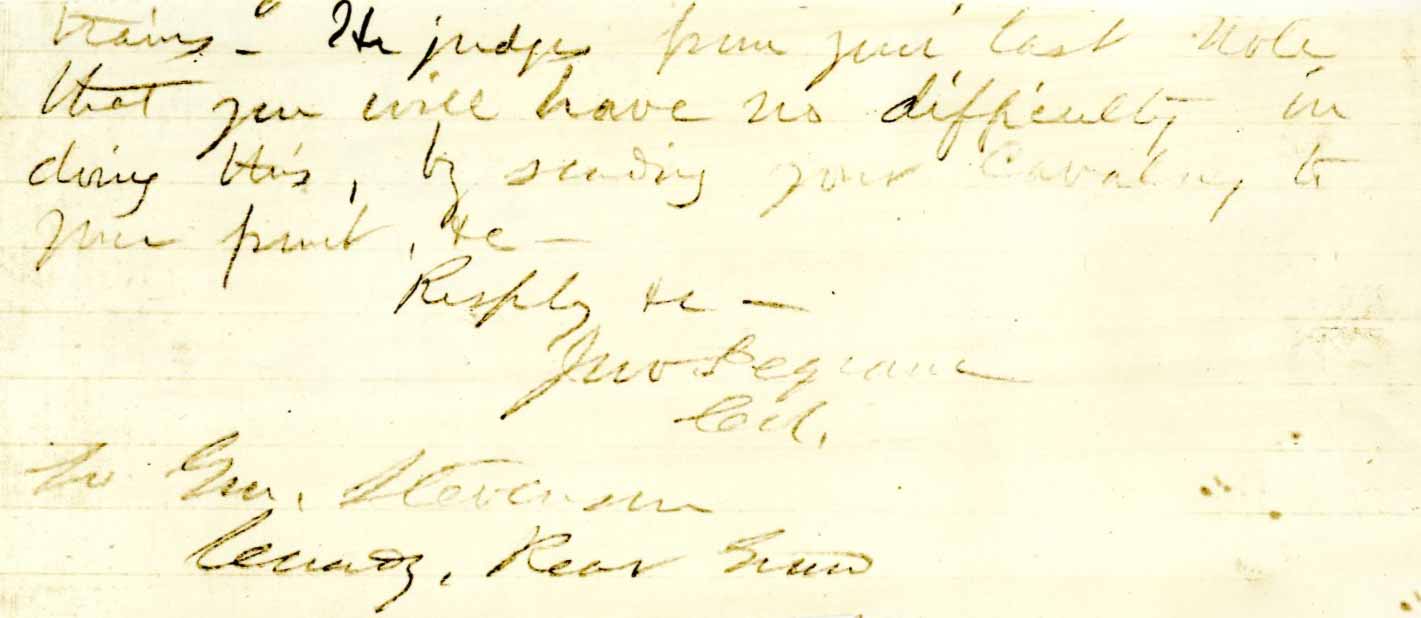 trains - He judges from your last note
that you will have no difficulty in
doing this, by sending your Cavalry to
your front, &c -
Respfly &c -
Jno
Col.
To Gen. Stevenson
Comdg. Rear Guard